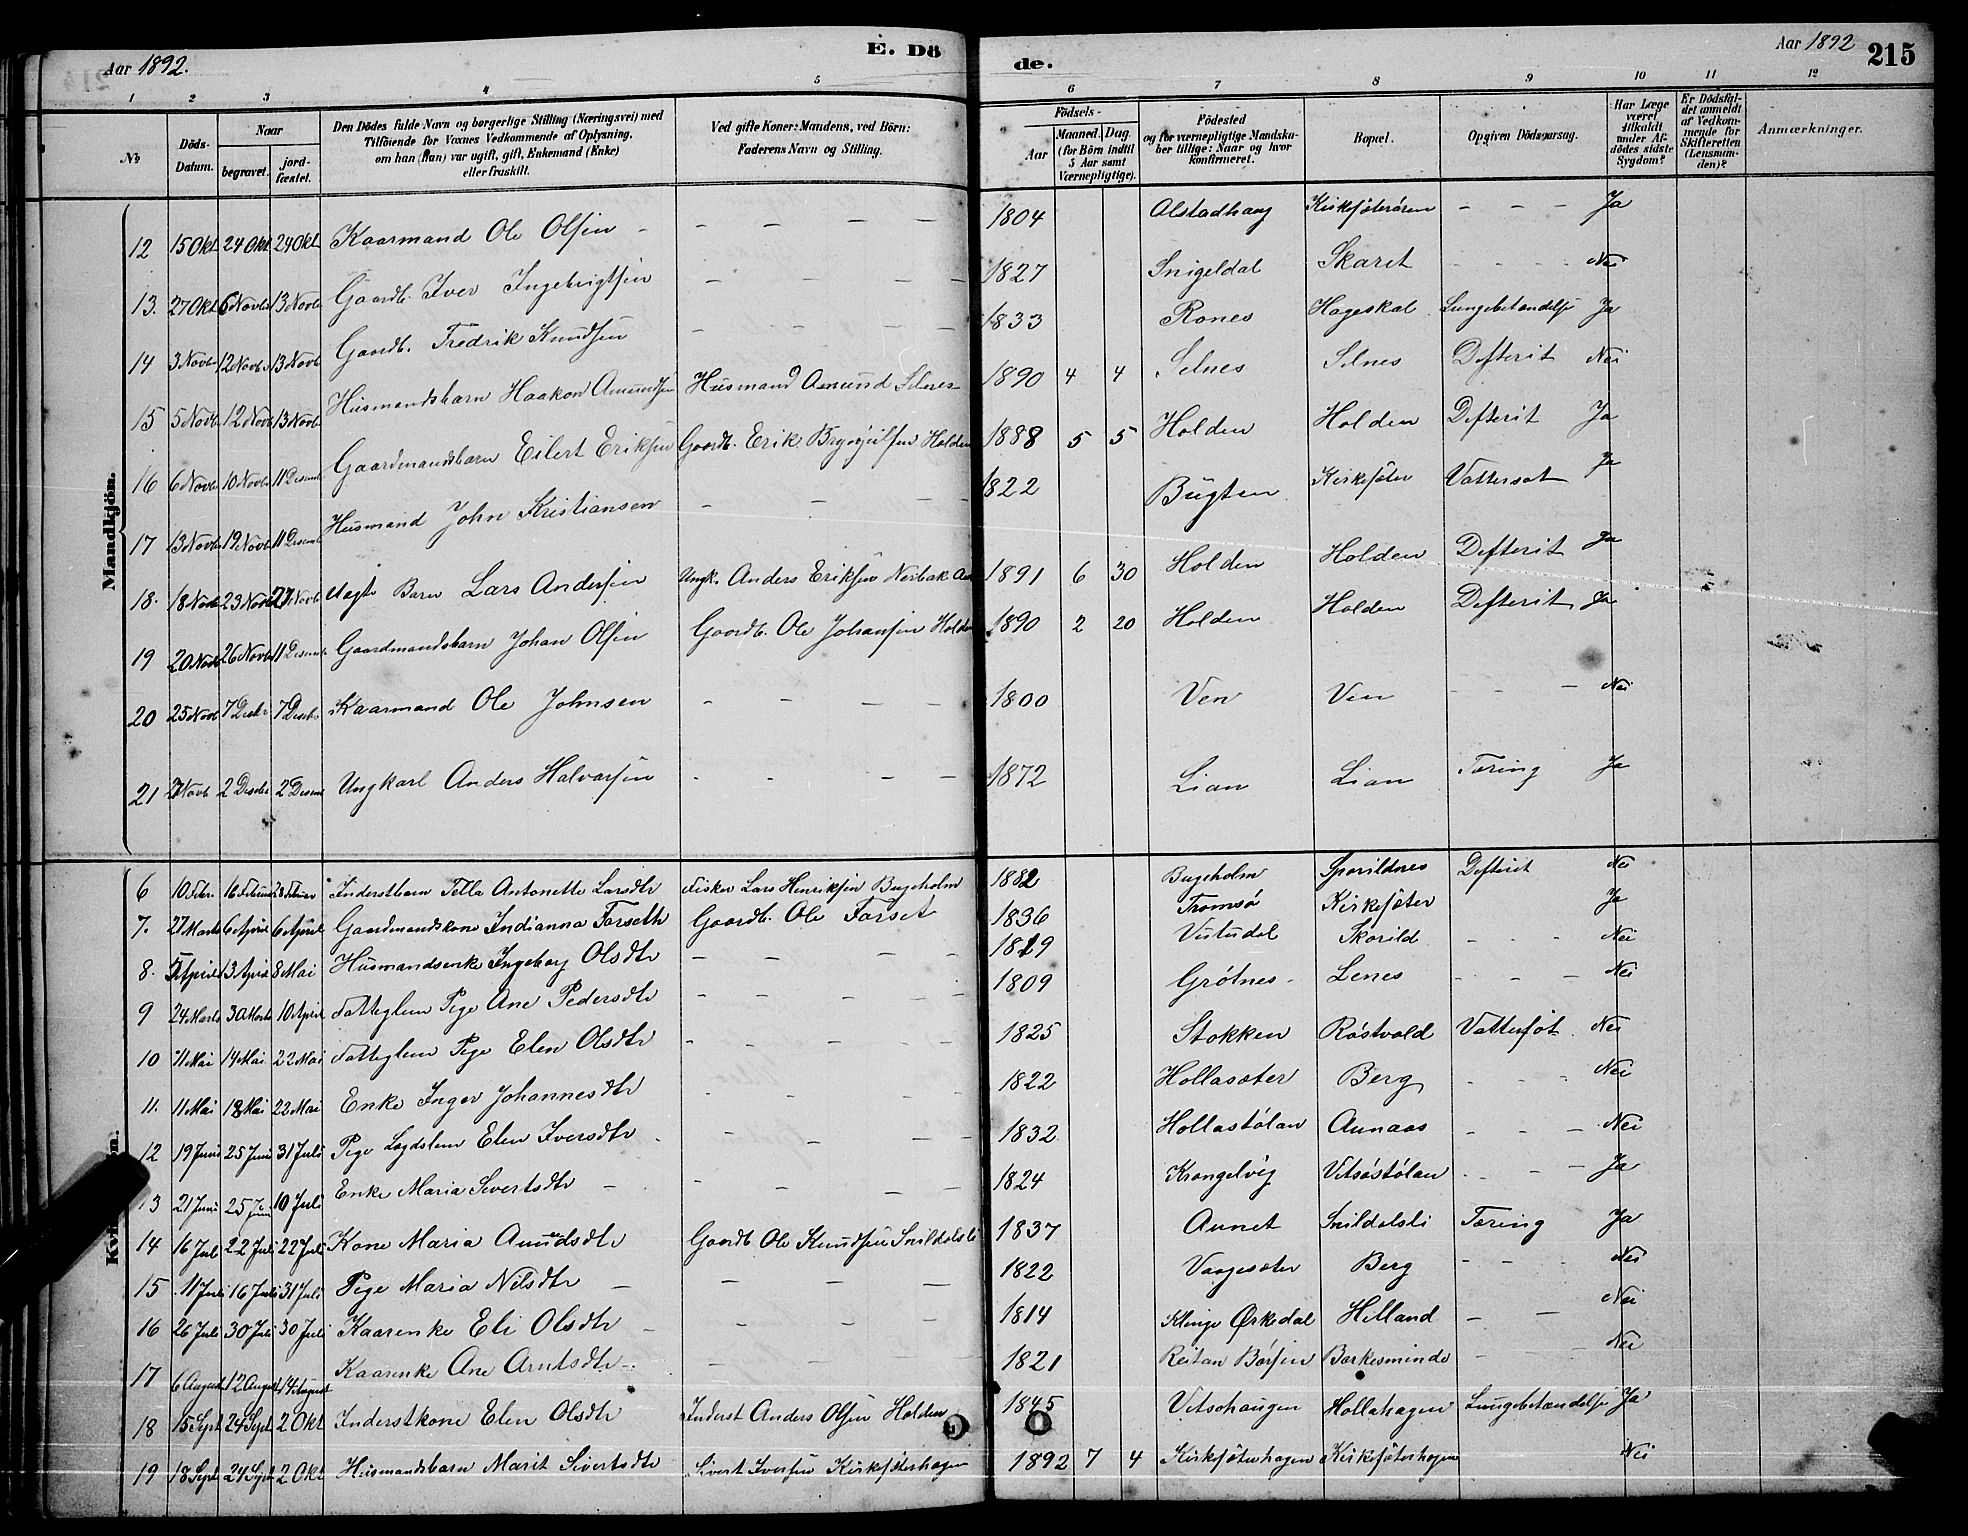 Aar 1892. E. Dö de. Aar 1892 215
1 2 3 4 5 6 7 8 9 10 11 12
No Döds-Datum. Naar begravet. jord-fæstet. Den Dödes fulde Navn og borgerlige Stilling (Næringsvei) med Tilföiende for Voxnes Vedkommende af Oplysning, om han (hun) var ugift, gift, Enkemand (Enke) eller fraskilt. Ved gifte Koner: Mandens, ved Börn: Faderens Navn og Stilling. Födsels- Aar Maaned. Dag. (for Börn indtil 5 Aar samt Værnepligtige). Födested og for værnepligtige Mandskaber tillige: Naar og hvor konfirmeret. Bopæl. Opgiven Dödsaarsag. Har Læge været tilkaldt under Afdödes sidste Sygdom? Er Dödsfaldet anmeldt af Vedkommende for Skifteretten (Lensmanden)? Anmærkninger.
Mandkjön.
12 15 Okt 24 Okt 24 Okt Kaarmand Ole Olsen - - - - - 1804 Alstadhaug Kirksæterøren - - - Ja
13. 27 Okt 6 Novbr 13 Novbr Gaardb. Iver Ingebrigtsen - - - - 1827 Snigeldal Skaret - - - - Nei
14 3 Novbr 12 Novbr 13 Novbr Gaardb. Fredrik Knudsen - - - - 1833 Rones Hageskal Lungebetændelse Ja
15 5 Novb 12 Novb 13 Novb Husmandsbarn Haakon Amundsen Husmand Amund Selnes 1890 4 4 Selnes Selnes Defterit Nei
16 6 Novb 10 Novb 11 Desemb Gaardmandsbarn Eilert Eriksen Gaardb. Erik Brynjulfsen Holden 1888 5 5 Holden Holden Defterit Ja
17 13 Novb 19 Novb 11 Desemb Husmand John Kristiansen - - - - 1822 Bugten Kirkesæter Vattersot Ja
18. 18 Novb 23 Novb 27 Novb Uegte Barn Lars Andersen Ungk. Anders Eriksen Nerbak 1891 6 30 Holden Holden Defterit Ja
19 20 Novb 26 Novb 11 Desemb Gaardmandsbarn Johan Olsen Gaardb. Ole Johansen Holden 1890 2 20 Holden Holden Defterit Ja
20 25 Novb 7 Desbr 7 Desbr Kaarmand Ole Johnsen - - - - 1800 Ven Ven - - - Nei
21 Novb 2 Desbr 2 Desemb Ungkarl Anders Halvorsen - - - - 1872 Lian Lian Tæring Ja
Kvi n.
6 10 Febr. 16 Februar 28 Februar Inderstbarn Tella Antonette Larsdtr Fisker Lars Henriksen Bugeholm 1882 Bugeholm Sporildnes Defterit Nei
7. 27 Marts 6 April 6 April Gaardmandskone Indianna Forseth Gaardb. Ole Forset 1836 Tromsø Kirkesæter Ja
8. 5 April 13 April 8 Mai Husmandsenke Ingeborg Olsdtr - - - - 1829 Skorild - - - Nei
9 24 Marts 30 Marts 10 April Fatteglem Pige Ane Pedersdtr - - - - 1809 Grøtnes Lenes - - - Nei
10 11 Mai 14 Mai 22 Mai Fatteglem Pige Elen Olsdtr - - - - - 1825 Stokken Røstvold Vattersot. Nei
11. 11 Mai 18 Mai 22 Mai Enke Inger Johannesdtr - - - - 1822 Hollasæter Berg - - - Nei
12 19 Juni 25 Juni 31 Juli Pige Lægdslem Elen Iversdtr - - - - 1832 Hollastølan Aunaas - - - Nei
13 21 Juni 25 Juni 10 Juli Enke Maria Sivertsdtr - - - - - 1824 Krangelvig Vitsøstølan - - - Ja
14 16 Jul 22 Juli 22 Juli Kone Maria Amundsdtr Gaardb. Ole Knudsen Snildalsli 1837 Aunet Snildalsli Tæring Ja
15 11 Juli 16 Juli 31 Juli Pige Maria Nilsdtr - - - - 1822 Vaagesæter Berg - - - Nei
16 26 Juli 30 Juli 30 Juli Kaarenke Eli Olsdtr - - - - 1814 Klinge Ørkedal Helland - - Nei
17 6 August 12 August 14 August Kaarenke Ane Arntsdtr - - - - 1821 Reitan Børsen Bærkesminde - - - Nei
18 15 Sept 24 Sept 2 Okt Inderstkone Elen Olsdtr Inderst Anders Olsen Holden 1845 Vitsohaugen Hollahagen Lungebetændelse Ja
19 18 Sept 24 Sept 2 Okt Husmandsbarn Marit Sivertsdtr Sivert Iversen Kirksæterhagen 1892 7 4 Kirksæterhagen Kirksæterhagen Nei